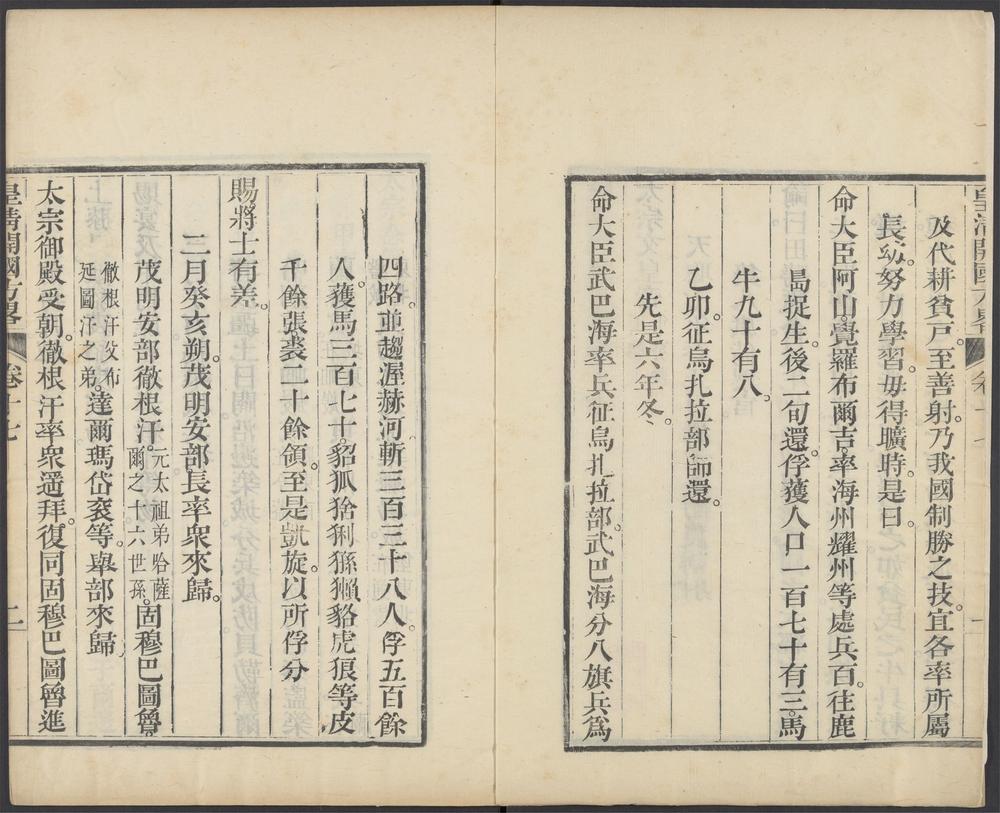 皇清開國方畧 卷十七 一
及代耕貧戶。至善射。乃我國制勝之技。宜各率所屬
長幼。努力學習。毋得曠時。是日。
命大臣阿山。覺羅布爾吉。率海州耀州等處兵百。往鹿
島捉生。後二旬還。俘獲人口一百七十有三。馬
牛九十有八。
乙卯。征烏扎拉部師還。
先是六年冬。
命大臣武巴海率兵征烏扎拉部。武巴海分八旗兵爲
四路。並趨渥赫河。斬三百三十八人。俘五百餘
人。獲馬三百七十。貂狐猞猁猻獺貉虎狼等皮
千餘張。裘二十餘領。至是凱旋。以所俘分
賜將士有差。
三月癸亥朔。茂明安部長率衆來歸。
茂明安部徹根汗。元太祖弟哈薩爾之十六世孫。固穆巴圖魯
徹根汗父布延圖汗之弟。達爾瑪岱袞等。舉部來歸。
太宗御殿受朝。徹根汗率衆遥拜。復同固穆巴圖魯進
皇清開國方畧 卷十七 二